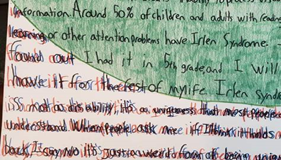 information. Around 50% of children and adults with reading
learning or other attention problems have Irlen Syndrome. I
found out I had it in 5th grade and I will
have it for the rest of my life. Irlen Syndrome
is not a disability, it's a uniqueness that most people
understand. When people ask me if I think it holds me
back, I say no it's just a weird of being unique